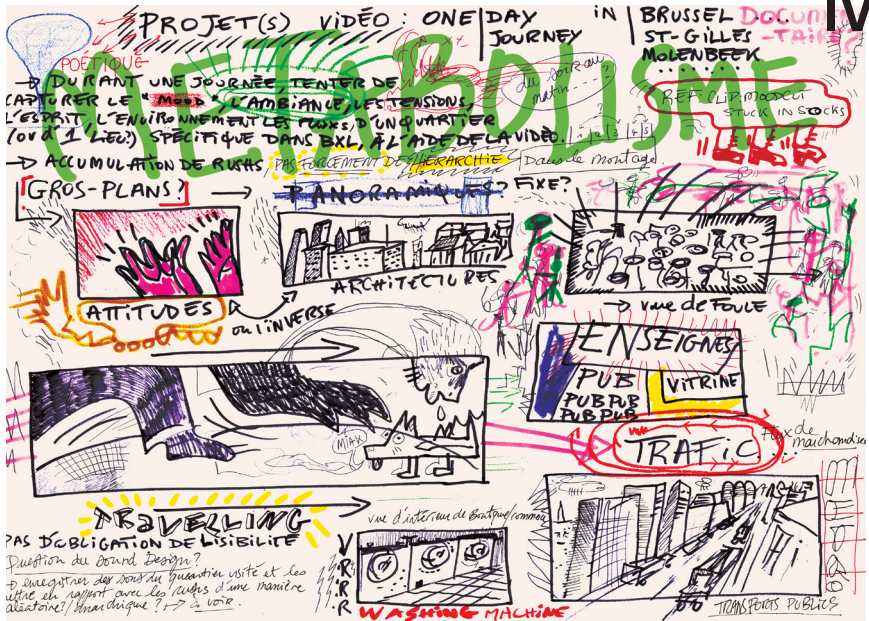 PROJET(S) ViDÉO : ONE DAY JOURNEY
iN BRUSSEL
ST-GILLES
MOLENBEEK
DOCUMEN
-TAIRE?
METABOLISME
POÉTIQUE
→ DURANT UNE JOURNÉE TENTER DE
CAPTURER LE "MOOD", L'AMBIANCE, LES TENSIONS,
L'ESPRIT L'ENVIRONNEMENT LES FLUXS, D'UN QUARTIER
(OU D'1 LIEU?) SPÉCIFIQUE DANS BXL, À L'AIDE DE LA VIDÉO.
→ ACCUMULATION DE RUSHS PAS FORCEMENT DE HIERARCHIE Dans le montage
du soir au
matin
REF. CLIP: MOODCUT
STUCK IN STOCKS
GROS-PLANS? → PANORAMIQUES? FIXE?
ATTITUDES
ou l'iNVERSE
ARCHITECTURES
→ vue de FOULE
ENSEIGNES
PUB
PUB PUB
PUB PUB
ViTRiNE
MIAK
TRAFiC
Flux de
marchandises
TRAVELLING
PAS D'OBLIGATION DE LISIBILITÉ
Question du Sound Design?
→ enregistrer des sons du quartier visité et les
mettre en rapport avec les rushs d'une manière
aléatoire? / anarchique? → à voir.
vue d'intérieur de Boutique/commerce
V
R
R
R
WASHING MACHINE
TRANSPORTS PUBLICS